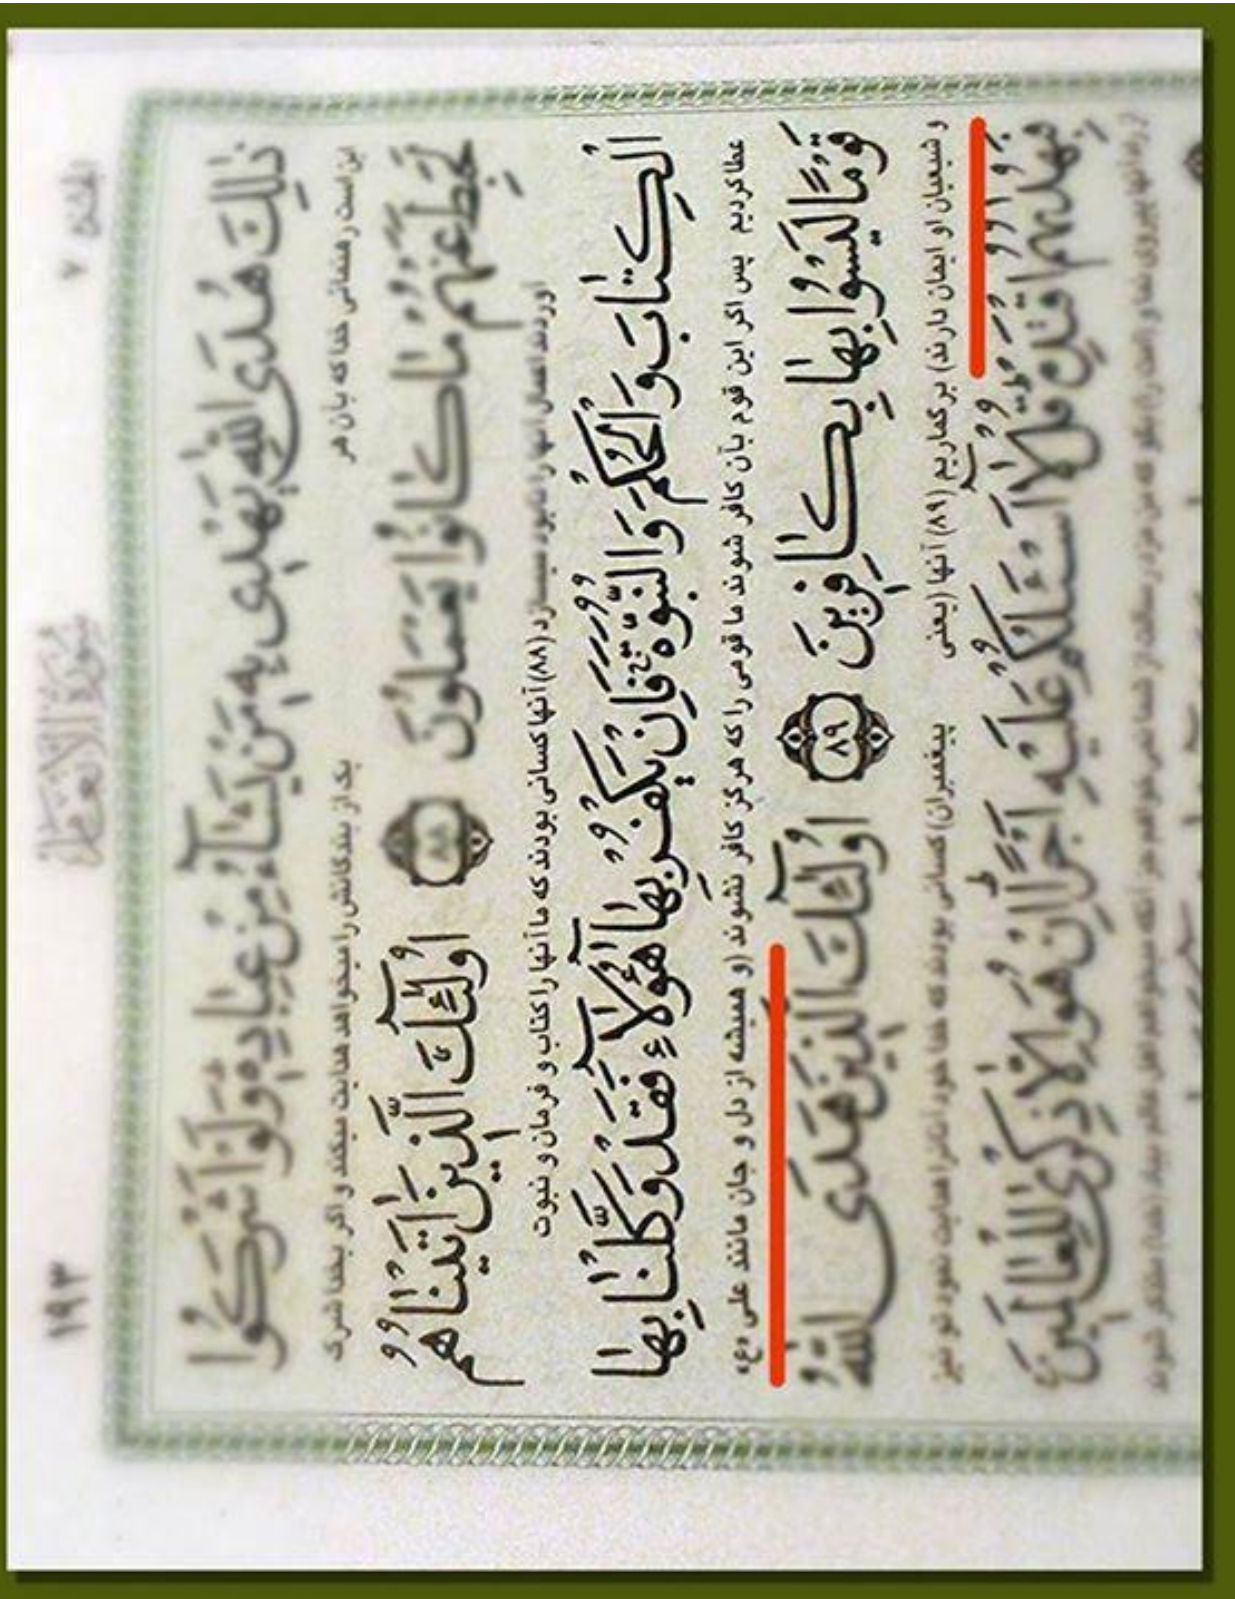 الجزء ٧ سُورَةُ الْاَنْعٰامِ ١٩٣
ذٰلِكَ هُدَى اللّٰهِ يَهْدِى بِهِ مَنْ يَشٰآءُ مِنْ عِبٰادِهِ وَلَوْ اَشْرَكُوا
این است رهنمائی خدا که بآن هر یک از بندگانش را میخواهد هدایت میکند و اگر بخدا شرک
لَحَبِطَ عَنْهُمْ مٰا كٰانُوا يَعْمَلُونَ ﴿٨٨﴾ اُولٰٓئِكَ الَّذِينَ اٰتَيْنٰاهُمُ
آوردند اعمال آنها را نابود میسازد (۸۸) آنها کسانی بودند که ما آنها را کتاب و فرمان و نبوت
الْكِتٰابَ وَالْحُكْمَ وَالنُّبُوَّةَ فَاِنْ يَكْفُرْ بِهٰا هٰٓؤُلٰآءِ فَقَدْ وَكَّلْنٰا بِهٰا
عطا کردیم پس اگر این قوم بآن کافر شوند ما قومی را که هرگز کافر نشوند (و همیشه از دل و جان مانند علی «ع»
قَوْمًا لَيْسُوا بِهٰا بِكٰافِرِينَ ﴿٨٩﴾ اُولٰٓئِكَ الَّذِينَ هَدَى اللّٰهُ
و شیعیان او ایمان دارند) برگماریم (۸۹) آنها (یعنی پیغمبران) کسانی بودند که خدا خود آنانرا هدایت نمود تو نیز
فَبِهُدٰيهُمُ اقْتَدِهْ قُلْ لٰآ اَسْئَلُكُمْ عَلَيْهِ اَجْرًا اِنْ هُوَ اِلّٰا ذِكْرٰى لِلْعٰالَمِينَ
آنها پیروی نما و (امت را) بگو که من مزد رسالت از شما نمی خواهم جز آنکه میخواهم اهل عالم بیاد (خدا) متذکر شوند